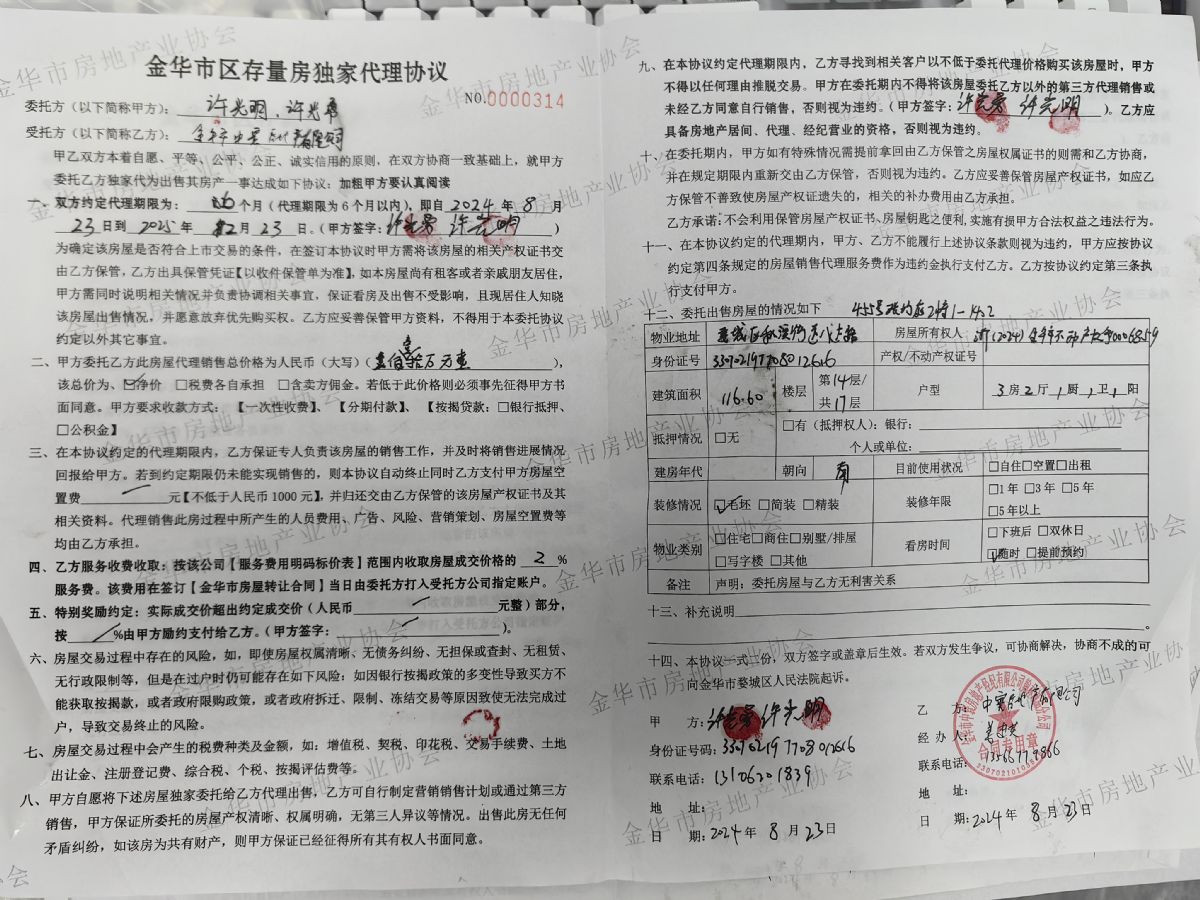 金华市区存量房独家代理协议
NO.0000314
委托方（以下简称甲方）：许光明、许光
受托方（以下简称乙方）：
甲乙双方本着自愿、平等、公平、公正、诚实信用的原则，在双方协商一致基础上，就甲方
委托乙方独家代为出售其房产一事达成如下协议：加粗甲方要认真阅读
一、双方约定代理期限为：个月（代理期限为6个月以内），即自2024年8月
23日到2025年2月23日。（甲方签字：许光 许光明）
为确定该房屋是否符合上市交易的条件，在签订本协议时甲方需将该房屋的相关产权证书交
由乙方保管，乙方出具保管凭证【以收件保管单为准】，如本房屋尚有租客或者亲戚朋友居住，
甲方需同时说明相关情况并负责协调相关事宜，保证看房及出售不受影响，且现居住人知晓
该房屋出售情况，并愿意放弃优先购买权。乙方应妥善保管甲方资料，不得用于本委托协议
约定以外其它事宜。
二、甲方委托乙方此房屋代理销售总价格为人民币（大写）（壹佰壹拾万元整），
该总价为、☑净价 □税费各自承担 □含卖方佣金。若低于此价格则必须事先征得甲方书
面同意。甲方要求收款方式： 【一次性收费】、【分期付款】、 【按揭贷款：□银行抵押、
□公积金】
三、在本协议约定的代理期限内，乙方保证专人负责该房屋的销售工作，并及时将销售进展情况
回报给甲方。若到约定期限仍未能实现销售的，则本协议自动终止同时乙方支付甲方房屋空
置费 元【不低于人民币1000元】，并归还交由乙方保管的该房屋产权证书及其
相关资料。代理销售此房过程中所产生的人员费用、广告、风险、营销策划、房屋空置费等
均由乙方承担。
四、乙方服务收费收取：按该公司【服务费用明码标价表】范围内收取房屋成交价格的 2 %
服务费。该费用在签订【金华市房屋转让合同】当日由委托方打入受托方公司指定账户。
五、特别奖励约定：实际成交价超出约定成交价（人民币 元整）部分，
按 %由甲方励约支付给乙方。（甲方签字： ）。
六、房屋交易过程中存在的风险，如，即使房屋权属清晰、无债务纠纷、无担保或查封、无租赁、
无行政限制等，但是在过户时仍可能存在如下风险：如因银行按揭政策的多变性导致买方不
能获取按揭款，或者政府限购政策，或者政府拆迁、限制、冻结交易等原因致使无法完成过
户，导致交易终止的风险。
七、房屋交易过程中会产生的税费种类及金额，如：增值税、契税、印花税、交易手续费、土地
出让金、注册登记费、综合税、个税、按揭评估费等。
八、甲方自愿将下述房屋独家委托给乙方代理出售，乙方可自行制定营销销售计划或通过第三方
销售，甲方保证所委托的房屋产权清晰、权属明确，无第三人异议等情况。出售此房无任何
矛盾纠纷，如该房为共有财产，则甲方保证已经征得所有其有权人书面同意。
九、在本协议约定代理期限内，乙方寻找到相关客户以不低于委托代理价格购买该房屋时，甲方
不得以任何理由推脱交易。甲方在委托期内不得将该房屋委托乙方以外的第三方代理销售或
未经乙方同意自行销售，否则视为违约。（甲方签字：许光 许光明）。乙方应
具备房地产居间、代理、经纪营业的资格，否则视为违约。
十、在委托期内，甲方如有特殊情况需提前拿回由乙方保管之房屋权属证书的则需和乙方协商，
并在规定期限内重新交出乙方保管，否则视为违约。乙方应妥善保管房屋产权证书，如应乙
方保管不善致使房屋产权证遗失的，相关的补办费用由乙方承担。
乙方承诺：不会利用保管房屋产权证书、房屋钥匙之便利，实施有损甲方合法权益之违法行为。
十一、在本协议约定的代理期内，甲方、乙方不能履行上述协议条款则视为违约，甲方应按协议
约定第四条规定的房屋销售代理服务费作为违约金执行支付乙方。乙方按协议约定第三条执
行支付甲方。
十二、委托出售房屋的情况如下
物业地址 房屋所有权人 浙(2024)金华市不动产权第0006859
身份证号 330702197708012616 产权/不动产权证号
建筑面积 116.60 楼层 第14层/共17层 户型 3房2厅1厨1卫1阳
抵押情况 □无 □有（抵押权人）：银行：
个人或单位：
建房年代 朝向 南 目前使用状况 □自住□空置□出租
装修情况 ☑毛坯 □简装 □精装 装修年限 □1年 □3年 □5年
□5年以上
物业类别 □住宅□商住□别墅/排屋 看房时间 □下班后 □双休日
□写字楼 □其他 ☑随时 □提前预约
备注 声明：委托房屋与乙方无利害关系
十三、补充说明
十四、本协议一式二份，双方签字或盖章后生效。若双方发生争议，可协商解决，协商不成的可
向金华市婺城区人民法院起诉。
甲 方：许光 许光明
身份证号码：330702197708012616
联系电话：13106201839
地 址：
日 期：2024年8月23日
乙 方：
经办人：
联系电话：13566779866
地 址：
日 期：2024年8月23日
合同专用章
金华市房地产业协会